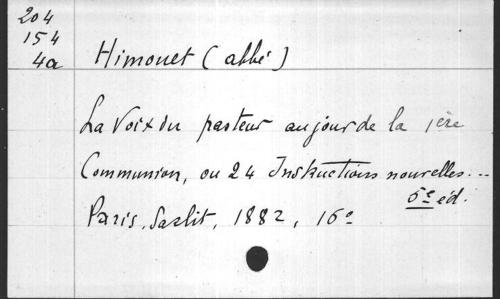 204
154
4a
Himonet (abbé)
La Voix du pasteur au jour de la 1ère
Communion, ou 24 Instructions nouvelles...
6e éd.
Paris, Sarlit, 1882, 16°